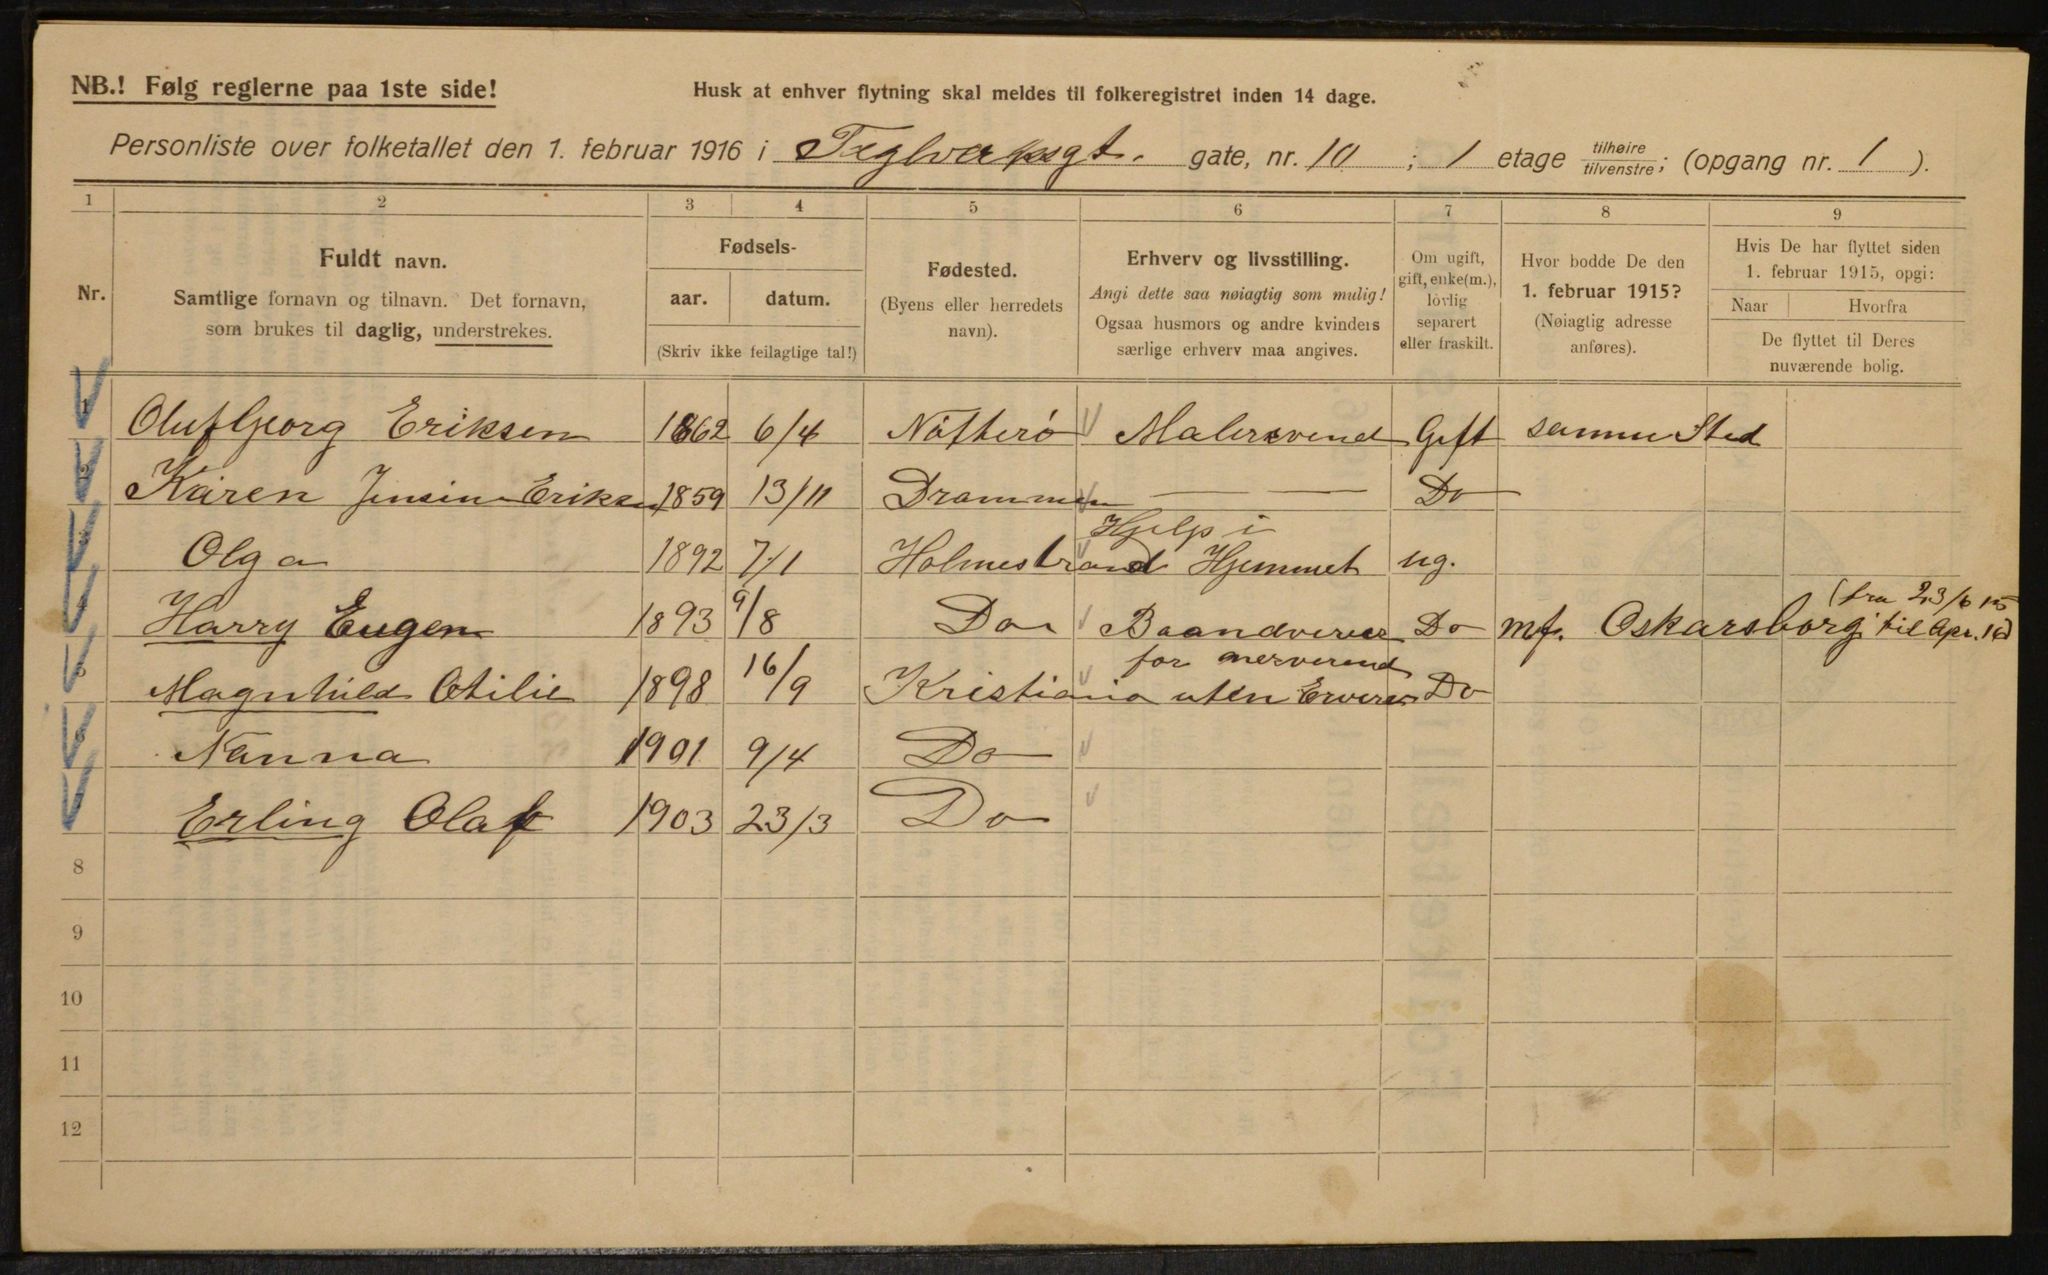 NB.! Følg reglerne paa 1ste side!
Husk at enhver flytning skal meldes til folkeregistret inden 14 dage.
Personliste over folketallet den 1. februar 1916 i Teglverksgt. gate, nr. 10 ; 1 etage tilhøire/tilvenstre; (opgang nr. 1 ).
1 2 3 4 5 6 7 8 9
Nr.
Fuldt navn.
Samtlige fornavn og tilnavn. Det fornavn,
som brukes til daglig, understrekes.
Fødsels-
aar. datum.
(Skriv ikke feilagtige tal!)
Fødested.
(Byens eller herredets
navn).
Erhverv og livsstilling.
Angi dette saa nøiagtig som mulig!
Ogsaa husmors og andre kvinders
særlige erhverv maa angives.
Om ugift,
gift, enke(m.),
lovlig
separert
eller fraskilt.
Hvor bodde De den
1. februar 1915?
(Nøiagtig adresse
anføres).
Hvis De har flyttet siden
1. februar 1915, opgi:
Naar Hvorfra
De flyttet til Deres
nuværende bolig.
1 Oluf Georg Eriksen 1862 6/4 Nøtterö Malersvend Gift samme Sted
2 Karen Jensine Eriksen 1859 13/11 Drammen — — Do
3 Olga 1892 7/1 Holmestrand Hjelp i Hjemmet ug.
4 Harry Eugen 1893 9/8 Do Do mf. Oskarsborg (fra 23/6 15 til Apr. 16)
5 Magnhild Otilie 1898 16/9 Kristiania for nerverend uten Do
6 Nanna 1901 9/4 Do
Erling Olaf 1903 23/3 Do
8
9
10
11
12